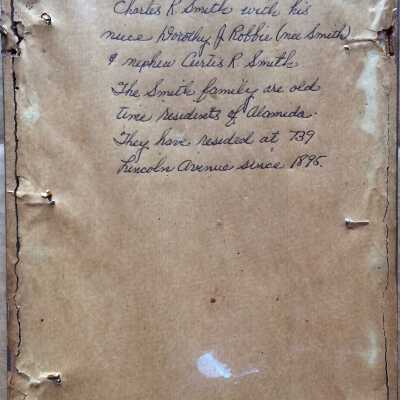 Charles R Smith with his
niece Dorothy J Robbie (nee Smith)
& nephew Curtis R Smith
The Smith family are old
time residents of Alameda.
They have resided at 739
Lincoln Avenue since 1895.